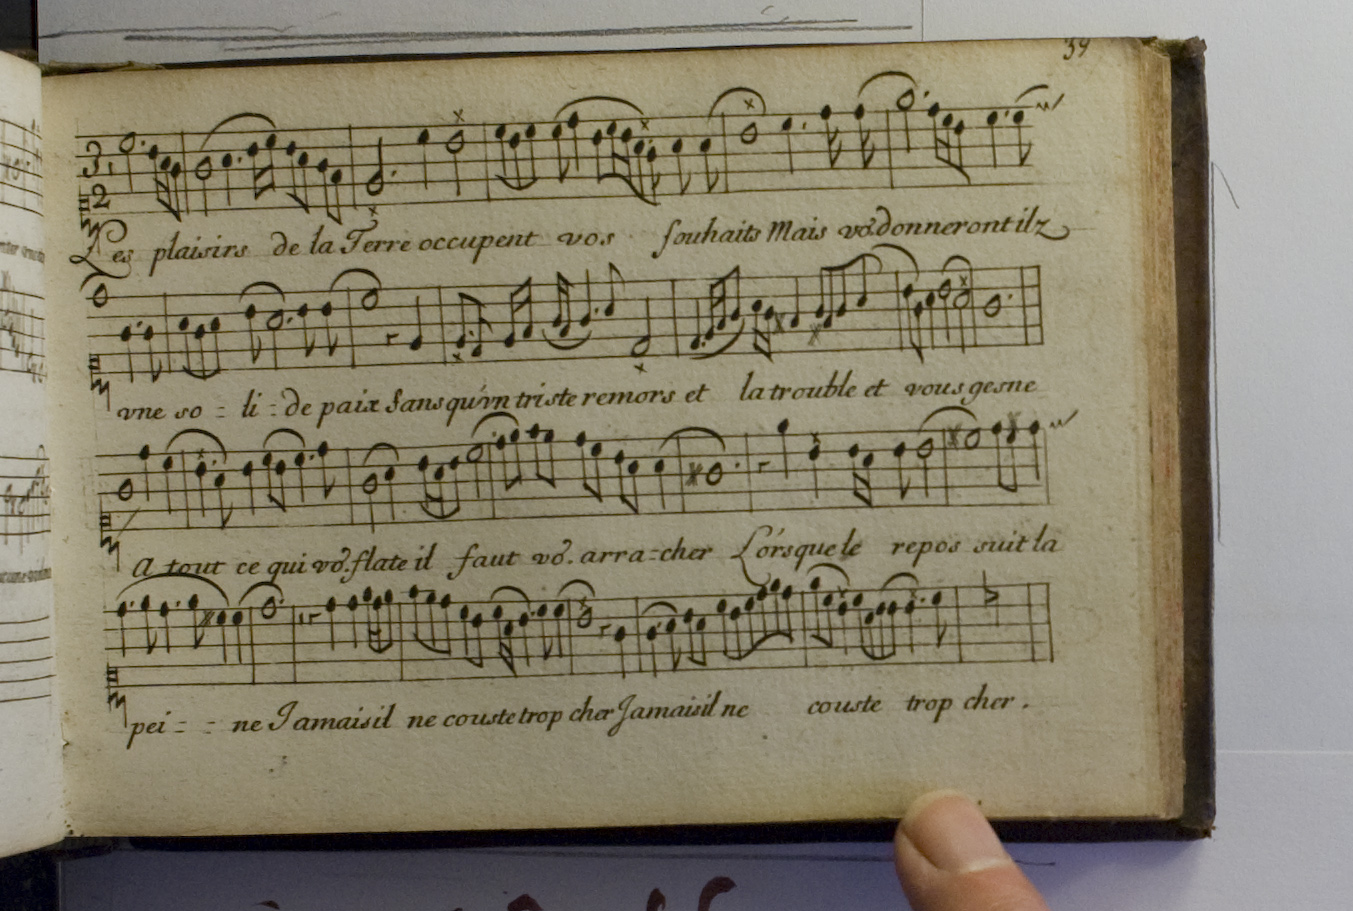 39
3
2
Les plaisirs de la Terre occupent vos souhaits Mais vo9 donneront ilz
vne so = li = de paix Sans qu'vn triste remors et la trouble et vous gesne
A tout ce qui vo9. flate il faut vo9. arra = cher Lórsque le repos suit la
pei = = ne Jamais il ne couste trop cher Jamais il ne couste trop cher.